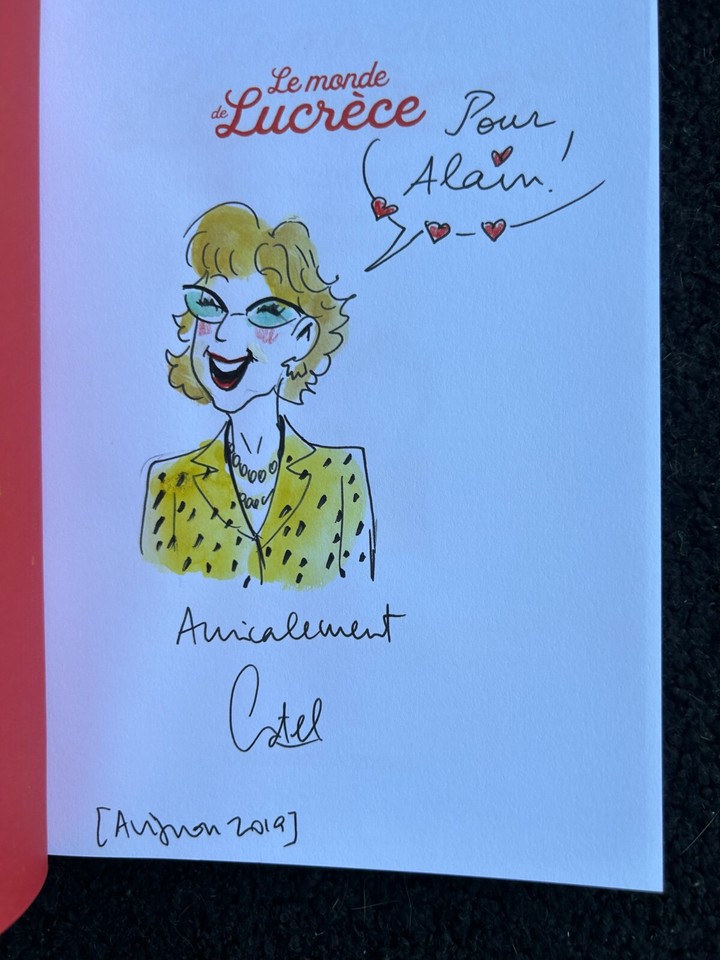 Le monde
de Lucrèce
Pour
Alain !
Amicalement
Catel
[Avignon 2019]